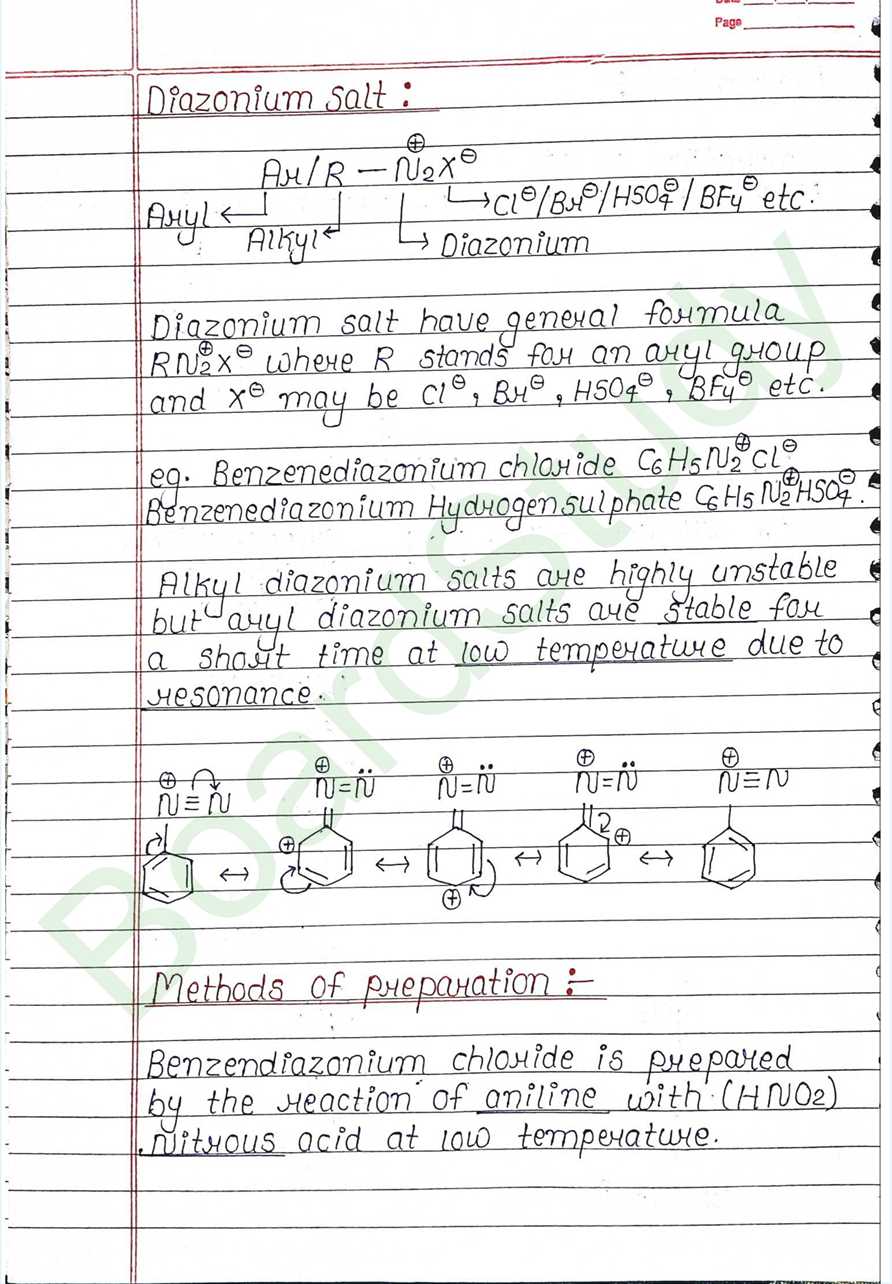 Page
Diazonium salt :
Ar/R – N₂⊕X⊖
Aryl ← → Cl⊖/Br⊖/HSO₄⊖/BF₄⊖ etc.
Alkyl ← → Diazonium
Diazonium salt have general formula
RN₂⊕X⊖ where R stands for an aryl group
and X⊖ may be Cl⊖, Br⊖, HSO₄⊖, BF₄⊖ etc.
eg. Benzenediazonium chloride C₆H₅N₂⊕Cl⊖
Benzenediazonium Hydrogensulphate C₆H₅N₂⊕HSO₄⊖.
Alkyl diazonium salts are highly unstable
but aryl diazonium salts are stable for
a short time at low temperature due to
resonance.
⊕ ⊕ ⊕ ⊕ ⊕
N≡N N=N̈ N=N̈ N=N̈ N≡N
⊕ ⊕
↔ ↔ ↔ ↔
⊕
Methods of preparation :–
Benzendiazonium chloride is prepared
by the reaction of aniline with (HNO₂)
Nitrous acid at low temperature.
BoardStudy